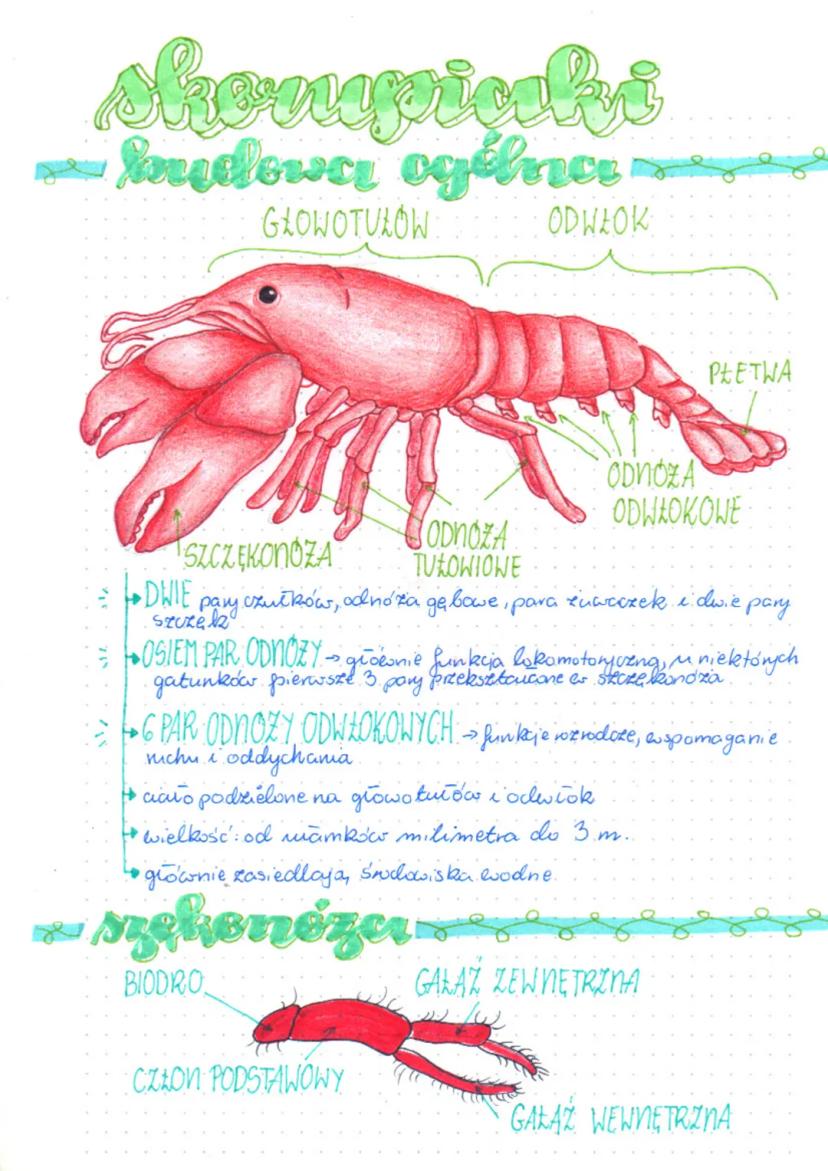 skorupiaki
budowa ogólna
GŁOWOTUŁÓW
ODWŁOK
PŁETWA
ODNÓŻA
ODWŁOKOWE
ODNÓŻA
TUŁOWIOWE
SZCZĘKONÓŻA
DWIE pary czułków, odnóża gębowe, para żuwaczek i dwie pary
szczęk
OSIEM PAR ODNÓŻY → głównie funkcja lokomotoryczna, u niektórych
gatunków pierwsze 3 pary przekształcone w szczękonóża
6 PAR ODNÓŻY ODWŁOKOWYCH → funkcje rozrodcze, wspomaganie
ruchu i oddychania
ciało podzielone na głowotułów i odwłok
wielkość: od ułamków milimetra do 3 m.
głównie zasiedlają środowiska wodne
szękonóża
BIODRO
GAŁĄŹ ZEWNĘTRZNA
CZŁON PODSTAWOWY
GAŁĄŹ WEWNĘTRZNA